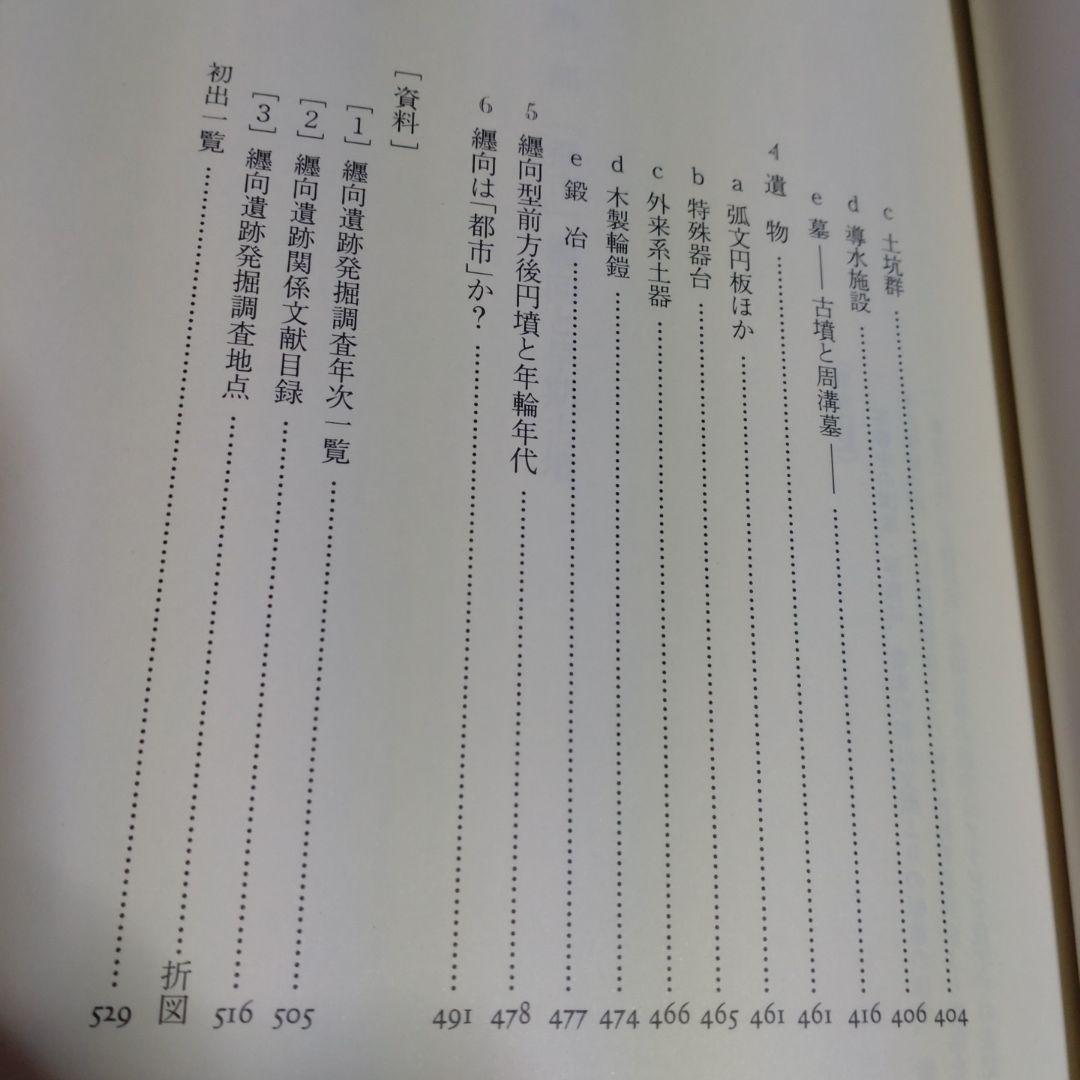 c 土坑群 …… 404
d 導水施設 …… 406
e 墓――古墳と周溝墓―― …… 416
4 遺物 …… 461
a 弧文円板ほか …… 461
b 特殊器台 …… 465
c 外来系土器 …… 466
d 木製輪鐙 …… 474
e 鍛冶 …… 477
5 纒向型前方後円墳と年輪年代 …… 478
6 纒向は「都市」か? …… 491
[資料]
[1] 纒向遺跡発掘調査年次一覧 …… 505
[2] 纒向遺跡関係文献目録 …… 516
[3] 纒向遺跡発掘調査地点 …… 折図
初出一覧 …… 529